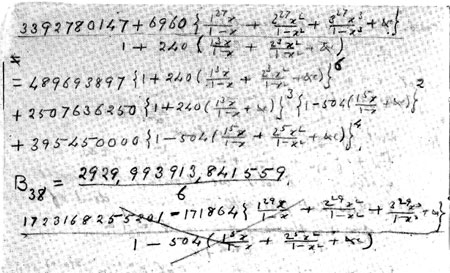 3392780147 + 6960 { 1²⁷x/1-x + 2²⁷x²/1-x² + 3²⁷x³/1-x³ + &c }
1 + 240 ( 1³x/1-x + 2³x²/1-x² + &c )
= 489693897 { 1 + 240 ( 1³x/1-x + 2³x²/1-x² + &c ) }⁶
+ 2507636250 { 1 + 240 ( 1³x/1-x + &c ) }³ { 1 - 504 ( 1⁵x/1-x + &c ) }²
+ 395450000 { 1 - 504 ( 1⁵x/1-x + 2⁵x²/1-x² + &c ) }⁴.
B₃₈ = 2929,993913,841559 / 6
1723168255201 - 171864 { 1²⁹x/1-x + 2²⁹x²/1-x² + 3²⁹x³/1-x³ + &c }
1 - 504 ( 1⁵x/1-x + 2⁵x²/1-x² + &c )